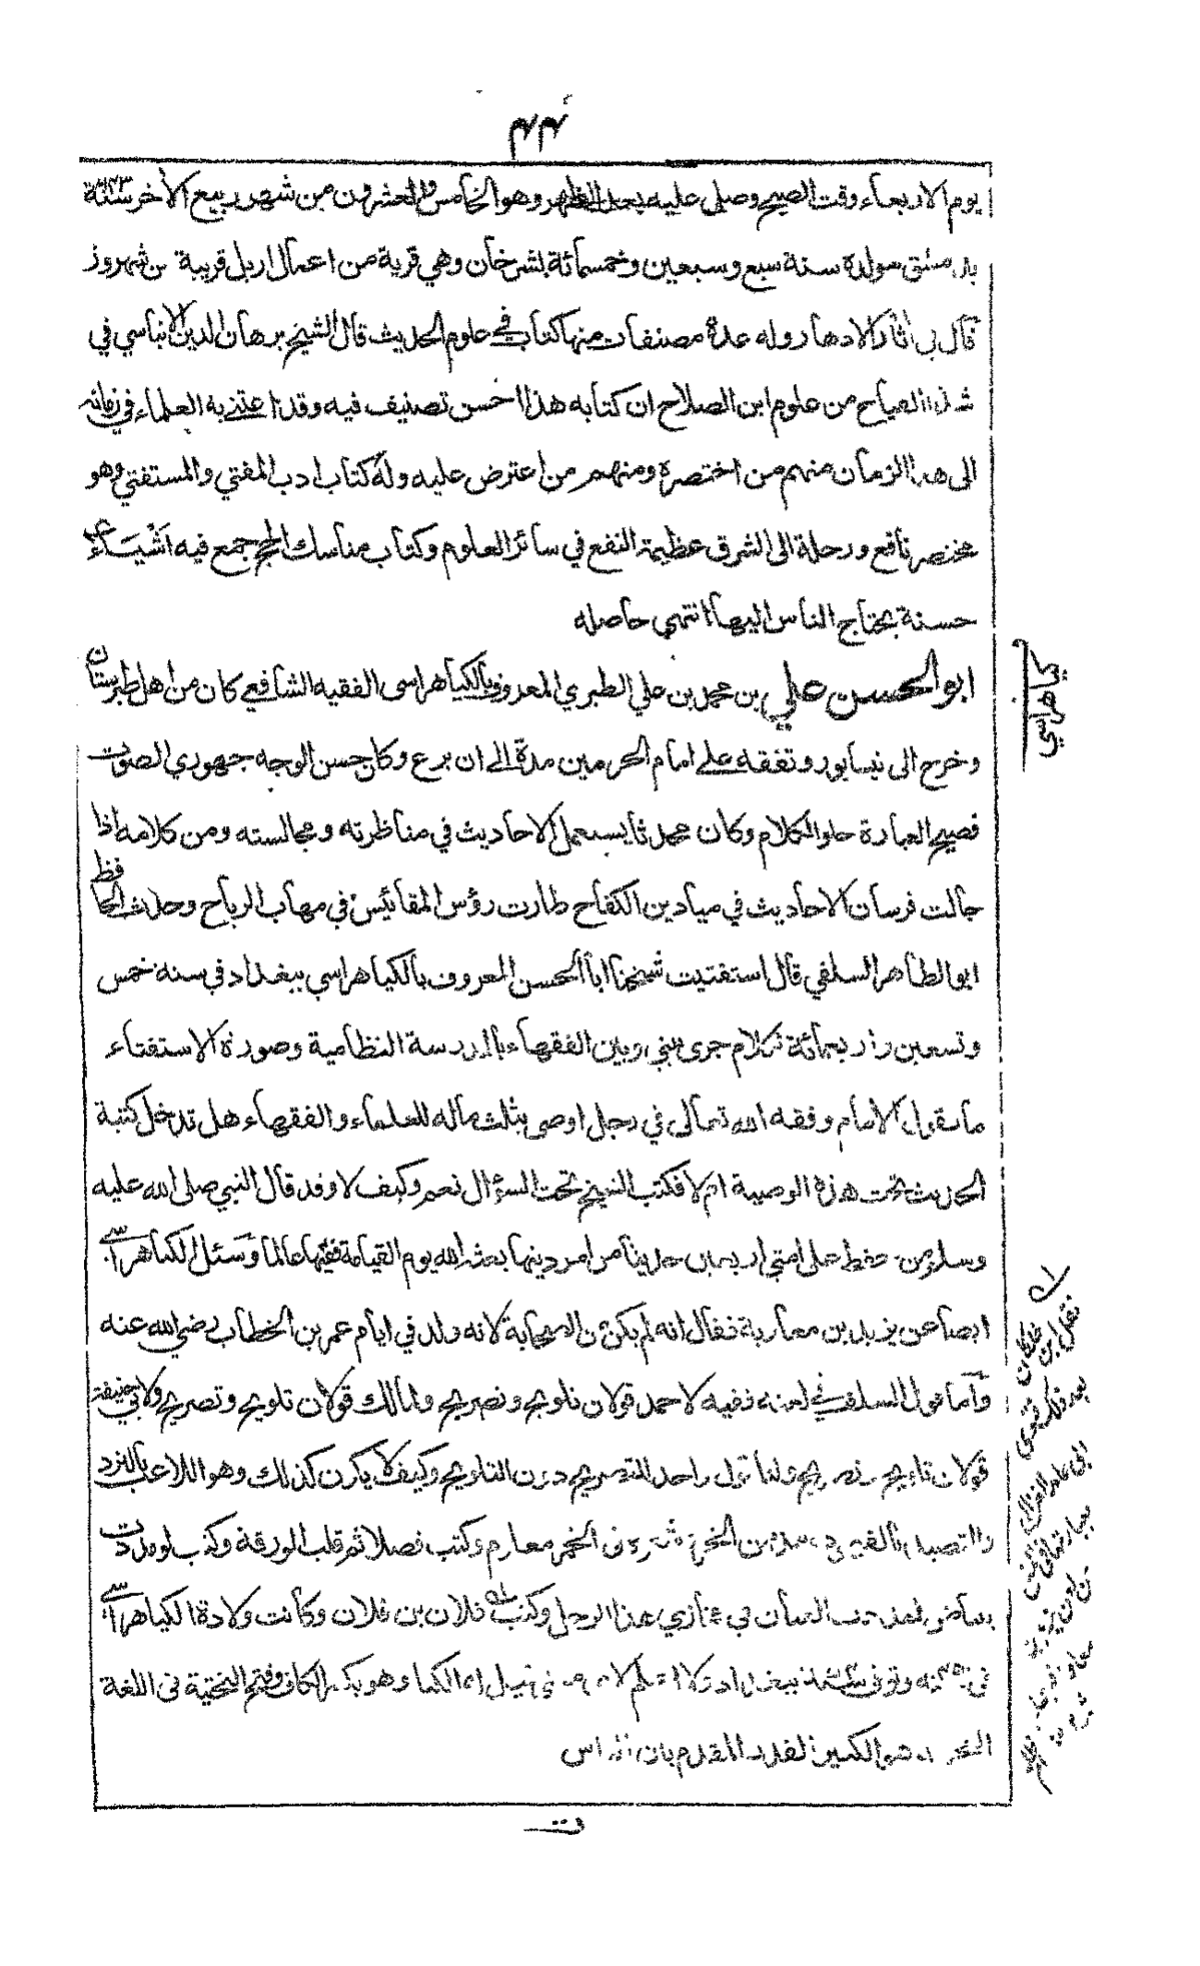 يوم الاربعاء وقت الصبح وصلي عليه بعد الظهر وهو الخامس والعشرون من شهر ربيع الآخر سنة ٦٤٣
بدمشق مولده سنة سبع وسبعين وخمسمائة بشرخان وهي قرية من اعمال اربل قريبة من شهروز
قال في آثار الادهار وله عدة مصنفات منها كتاب في علوم الحديث قال الشيخ برهان الدين الانباسي في
شذا الفياح من علوم ابن الصلاح ان كتابه هذا احسن تصنيف فيه وقد اعتنى به العلماء في زمانه
الى هذا الزمان منهم من اختصره ومنهم من اعترض عليه وله كتاب ادب المفتي والمستفتي وهو
مختصر نافع ورحلة الى الشرق عظيمة النفع في سائر العلوم وكتاب مناسك الحج جمع فيه أشياء
حسنة يحتاج الناس اليها انتهى حاصله
ابو الحسن علي بن محمد بن علي الطبري المعروف بالكيا هراسى الفقيه الشافعي كان من اهل طبرستان
وخرج الى نيسابور وتفقه على امام الحرمين مدة الى ان برع وكان حسن الوجه جهوري الصوت
فصيح العبارة حلو الكلام وكان محدثا يستعمل الاحاديث في مناظرته ومجالسته ومن كلامه اذا
جالت فرسان الاحاديث في ميادين الكفاح طارت رؤس المقائيس في مهاب الرياح وحدث الحافظ
ابو الطاهر السلفي قال استفتيت شيخنا ابا الحسن المعروف بالكيا هراسي ببغداد في سنة خمس
وتسعين واربعمائة لكلام جرى بيني وبين الفقهاء بالمدرسة النظامية وصورة الاستفتاء
ما يقول الامام وفقه الله تعالى في رجل اوصى بثلث ماله للعلماء والفقهاء هل تدخل كتبة
الحديث تحت هذه الوصية ام لا فكتب الشيخ تحت السؤال نعم وكيف لا وقد قال النبي صلى الله عليه
وسلم من حفظ على امتي اربعين حديثا من امر دينها بعثه الله يوم القيامة فقيها عالما وسئل الكيا هراسي
ايضا عن يزيد بن معاوية فقال انه لم يكن من الصحابة لانه ولد في ايام عمر بن الخطاب رضي الله عنه
وأما قول السلف في لعنه ففيه لاحمد قولان تلويح وتصريح ولمالك قولان تلويح وتصريح ولابي حنيفة
قولان تلويح وتصريح ولنا قول واحد التصريح دون التلويح وكيف لا يكون كذلك وهو اللاعب بالنرد
والتصيد بالفهود ومدمن الخمر وشعره في الخمر معلوم وكتب فصلا ثم قلب الورقة وكتب لو مددت
ببياض لمددت العنان في مخازي هذا الرجل وكتب فلان بن فلان وكانت ولادة الكيا هراسي
في سنة وتوفي سنة ببغداد الكيا وهو بكسر الكاف وفتح التحتية في اللغة
هو الكبير القدر المقدم بين الناس
ت
كيا هراسي
نقل ابن خلكان
بعد ذلك فتوى
ابي حامد الغزالي